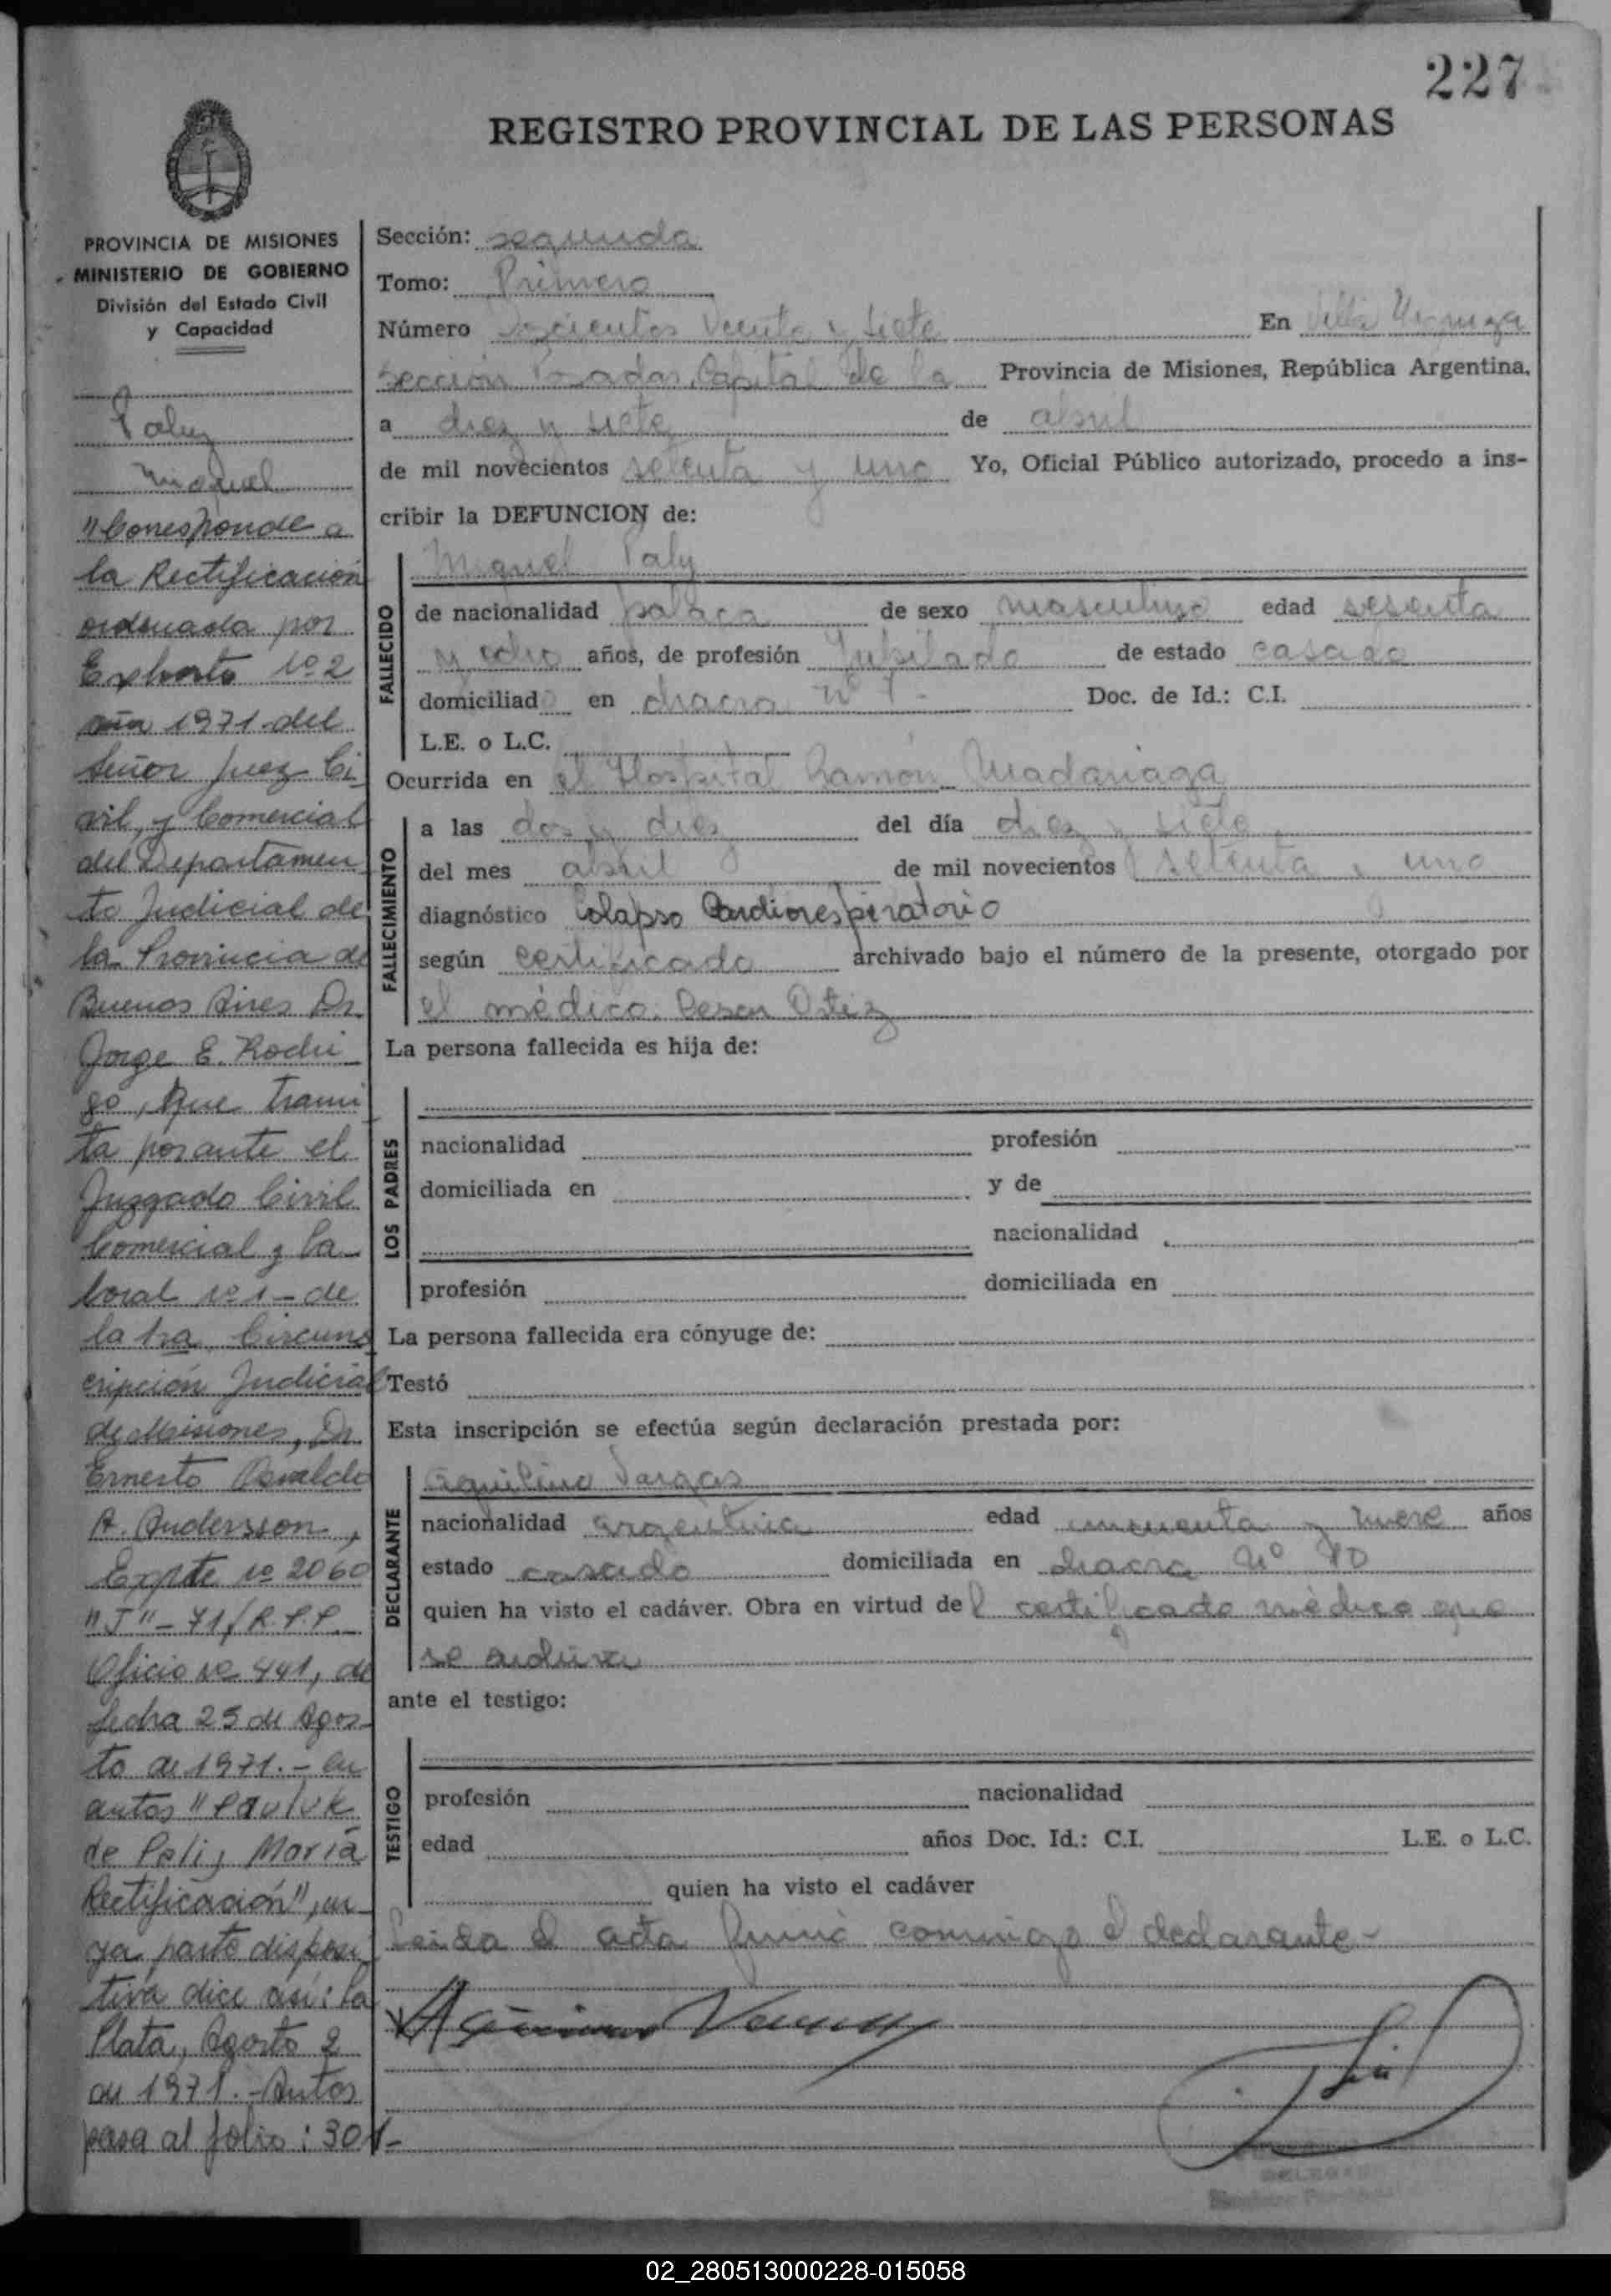 227
REGISTRO PROVINCIAL DE LAS PERSONAS
PROVINCIA DE MISIONES
MINISTERIO DE GOBIERNO
División del Estado Civil
y Capacidad
Paly
Miguel
"Corresponde a
la Rectificación
ordenada por
Exhorto Nº 2
año 1971 del
Señor Juez Ci
vil, y Comercial
del Departamen
to Judicial de
la Provincia de
Buenos Aires Dr.
Jorge E. Rodri
go, que trami
ta por ante el
Juzgado Civil
Comercial y La
boral Nº 1 - de
la 1ra. Circuns
cripción Judicial
de Misiones, Dr.
Ernesto Osvaldo
A. Andersson,
Expte Nº 2060
"J" - 71/R.P.P.
Oficio Nº 441, de
fecha 25 de Agos-
to de 1971. - en
autos "Pauluk
de Pali, María
Rectificación", cu-
ya parte disposi
tiva dice así: La
Plata, Agosto 2
de 1971. - Autos
pasa al folio: 301-
Sección: segunda
Tomo: Primero
Número Doscientos Veinte y siete En Villa Urquiza
Sección Posadas, Capital de la Provincia de Misiones, República Argentina,
a diez y siete de abril
de mil novecientos setenta y uno Yo, Oficial Público autorizado, procedo a ins-
cribir la DEFUNCION de:
FALLECIDO
Miguel Paly
de nacionalidad polaca de sexo masculino edad sesenta
y ocho años, de profesión Jubilado de estado casado
domiciliado en chacra nº 7 - Doc. de Id.: C.I.
L.E. o L.C.
Ocurrida en el Hospital Ramón Madariaga
FALLECIMIENTO
a las dos y diez del día diez y siete
del mes abril de mil novecientos setenta y uno
diagnóstico Colapso Cardiorespiratorio
según certificado archivado bajo el número de la presente, otorgado por
el médico: Cesar Ortiz
La persona fallecida es hija de:
LOS PADRES
nacionalidad profesión
domiciliada en y de
nacionalidad
profesión domiciliada en
La persona fallecida era cónyuge de:
Testó
Esta inscripción se efectúa según declaración prestada por:
DECLARANTE
Aquilino Vargas
nacionalidad argentina edad cincuenta y nueve años
estado casado domiciliada en chacra Nº 70
quien ha visto el cadáver. Obra en virtud del certificado médico que
se archiva
ante el testigo:
TESTIGO
profesión nacionalidad
edad años Doc. Id.: C.I. L.E. o L.C.
quien ha visto el cadáver
Leida el acta firma conmigo el declarante -
02_280513000228-015058